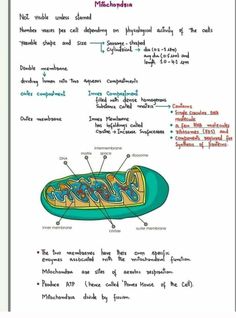 Mitochondria
Not visible unless stained
Number varies per cell depending on physiological activity of the cells
Variable shape and size → Sausage-shaped
→ Cylinderical → dia (0.2-1 µm)
avg dia (0.5 µm) and
length 1.0-4.1 µm
Double membrane
dividing lumen into Two Aqueous Compartments
outer compartment
Inner Compartment
filled with dense homogenous
Substance called matrix → Contains
• Single Circular DNA
molecule
• a few RNA molecules
• Ribosomes (70S) and
• Components required for
Synthesis of proteins
Outer membrane
Inner Membrane
has infoldings called
Cristae → Increase Surfacearea
intermembrane
matrix
space
ribosome
DNA
inner membrane
cristae
outer membrane
• The two membranes have their own specific
enzymes associated with the mitochondrial function
Mitochondria are sites of aerobic respiration
• Produce ATP (hence called 'Power House of the Cell).
Mitochondria divide by fission